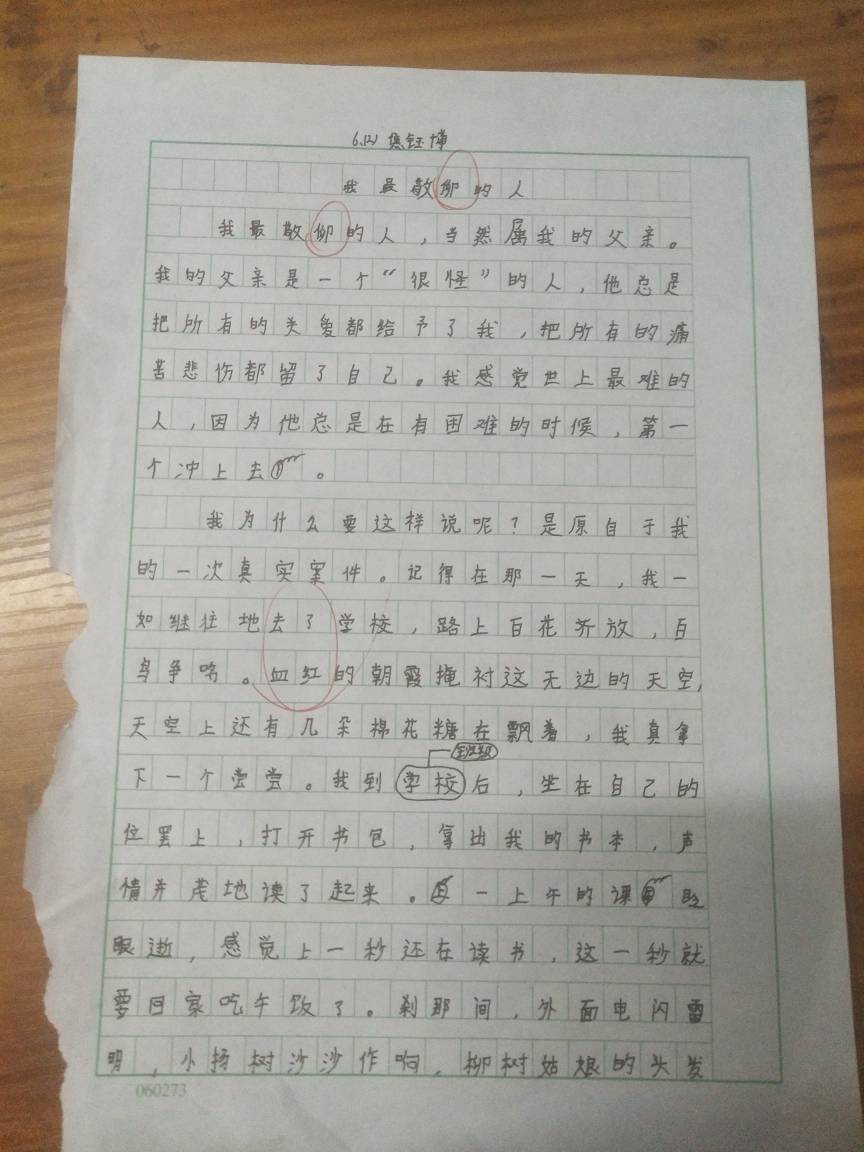 6.(2) 焦钰博
我最敬仰的人
我最敬仰的人，当然属我的父亲。
我的父亲是一个“很怪”的人，他总是
把所有的关爱都给予了我，把所有的痛
苦悲伤都留了自己。我感觉世上最难的
人，因为他总是在有困难的时候，第一
个冲上去。
我为什么要这样说呢？是原自于我
的一次真实案件。记得在那一天，我一
如继往地去了学校，路上百花齐放，百
鸟争鸣。血红的朝霞掩衬这无边的天空，
天空上还有几朵棉花糖在飘着，我真拿
下一个尝尝。我到学校后，坐在自己的
班级
位置上，打开书包，拿出我的书本，声
情并茂地读了起来。一上午的课眨
眼逝，感觉上一秒还在读书，这一秒就
要回家吃午饭了。刹那间，外面电闪雷
明，小扬树沙沙作响，柳树姑娘的头发
060273